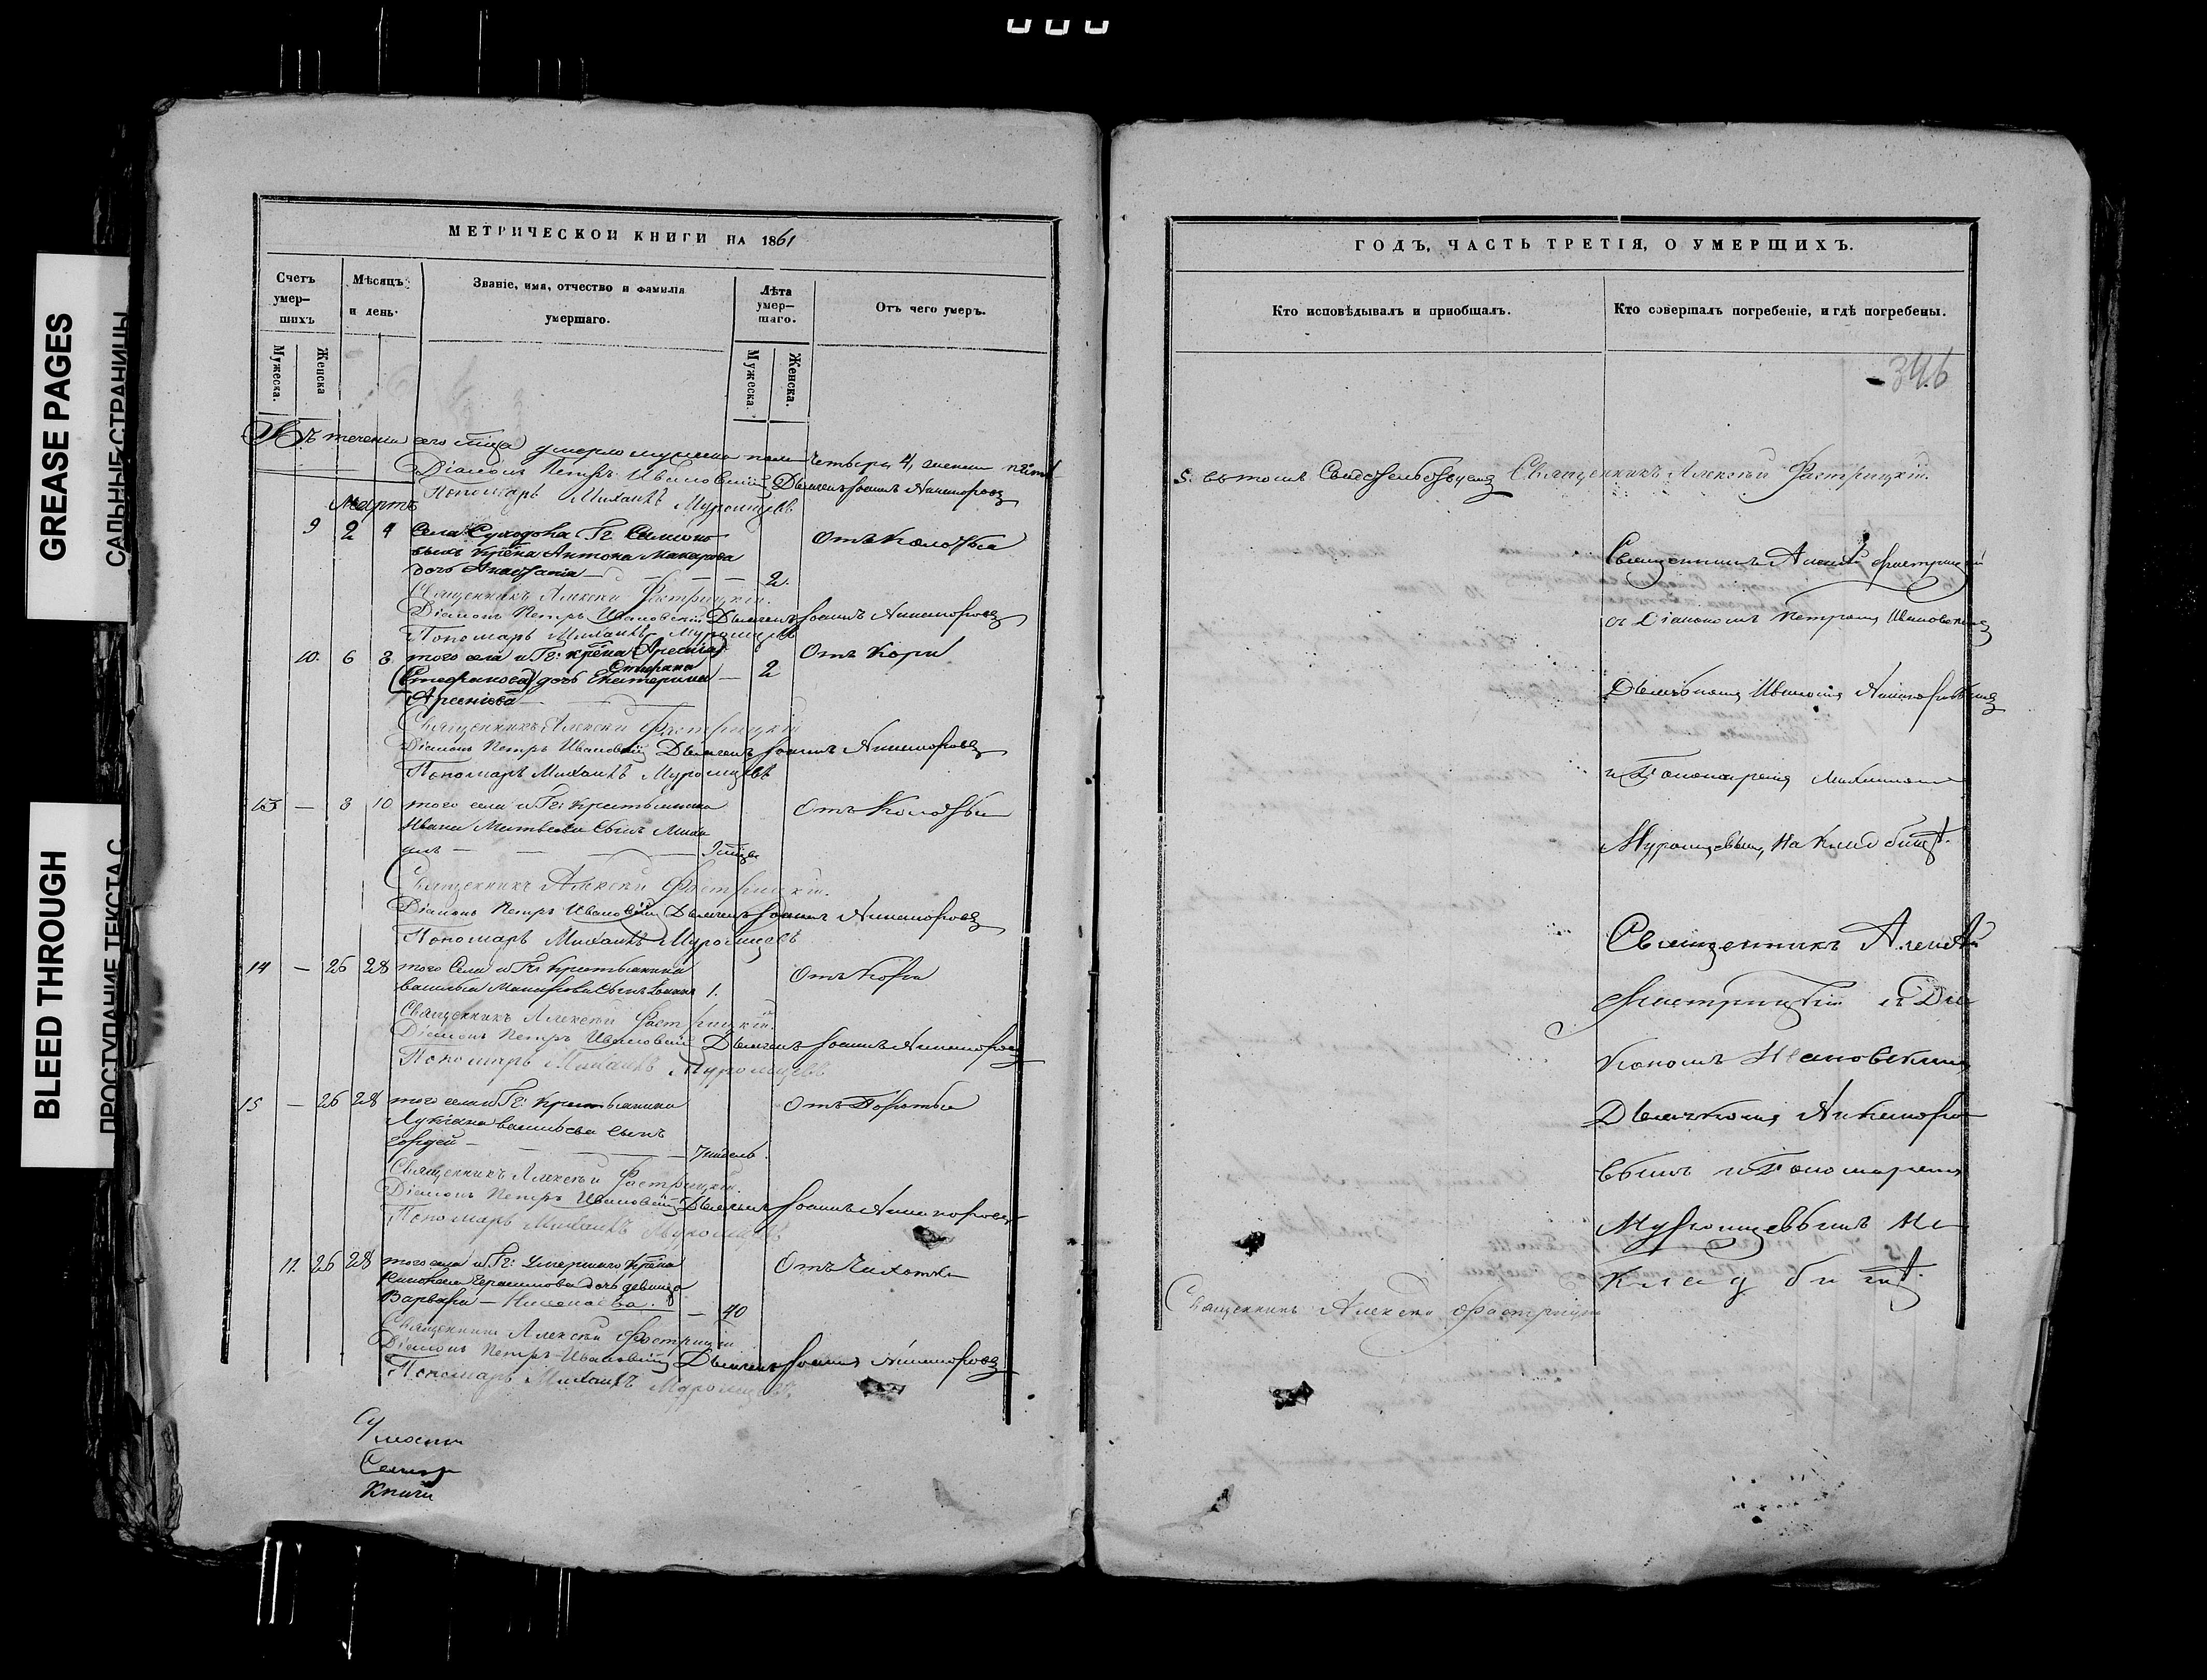 GREASE PAGES
САЛЬНЫЕ СТРАНИЦЫ
BLEED THROUGH
ПРОСТУПАНИЕ ТЕКСТА С
МЕТРИЧЕСКОЙ КНИГИ НА 1861
Счетъ умер-шихъ
Мѣсяцъ и день.
Званіе, имя, отчество и фамилія умершаго.
Лѣта умер-шаго.
Отъ чего умеръ.
Мужеска.
Женска
Мужеска
Женска.
Въ теченіи сего мѣсяца умерло мужеска пола четыре 4, женска
Діаконъ Петръ Ивановскій Дьячекъ Іоаннъ Никаноровъ
Пономарь Михаилъ Муромцевъ
Мартъ
9 2 4 Села Суходола Гг.
крѣна Антона Макарова
дочь Анастасія — 2.
Священникъ Алексѣй Фастрицкій.
Діаконъ Петръ Ивановскій Дьячекъ Іоаннъ Никаноровъ
Пономарь Михаилъ Муромцевъ
10. 6 8 того села и Гг: крѣна (Арсенія) Отъ Кори
Стефана
(Стефанова) дочь Екатерина — 2
Арсеніева
Священникъ Алексѣй Фастрицкій
Діаконъ Петръ Ивановскій Дьячекъ Іоаннъ Никаноровъ
Пономарь Михаилъ Муромцевъ
13 — 8 10 того села и Гг: крестьянина
Ивана Матвѣева сынъ Миха
илъ —
Священникъ Алексѣй Фастрицкій.
Діаконъ Петръ Ивановскій Дьячекъ Іоаннъ Никаноровъ
Пономарь Михаилъ Муромцевъ
14 — 26 28 того Села и Гг: Крестьянина Отъ Кори
Василья сынъ 1.
Священникъ Алексѣй Фастрицкій.
Діаконъ Петръ Ивановскій Дьячекъ Іоаннъ Никаноровъ
Пономарь Михаилъ Муромцевъ
15 — 26 28 того села и Гг: крестьянина
Лукіана Васильева сынъ
Гордей — 7 недель.
Священникъ Алексѣй Фастрицкій.
Діаконъ Петръ Ивановскій Дьячекъ Іоаннъ Никаноровъ
Пономарь Михаилъ Муромцевъ
11. 26 28 того села и Гг: умершаго крѣна Отъ Чахотки
Герасимова дочь девица
Варвара — 40
Священникъ Алексѣй Фастрицкій
Діаконъ Петръ Ивановскій Дьячекъ Іоаннъ Никаноровъ
Пономарь Михаилъ Муромцевъ.
Книги
ГОДЪ, ЧАСТЬ ТРЕТІЯ, О УМЕРШИХЪ.
Кто исповѣдывалъ и приобщалъ.
Кто совершалъ погребеніе, и гдѣ погребены.
346
5. въ томъ свидетельствуемъ Священникъ Алексѣй Фастрицкій.
Священникъ Алексѣй Фастрицкій
съ Діакономъ Петромъ Ивановскимъ
Дьячкомъ Иваномъ Никаноровымъ
и Пономаремъ Михаиломъ
Муромцевымъ, на кладбищѣ.
Священникъ Алексѣй
Фастрицкій съ Діа
кономъ Ивановскимъ
Дьячкомъ Никаноро
вымъ и Пономаремъ
Муромцевымъ на
кладбищѣ.
Священникъ Алексѣй Фастрицкій